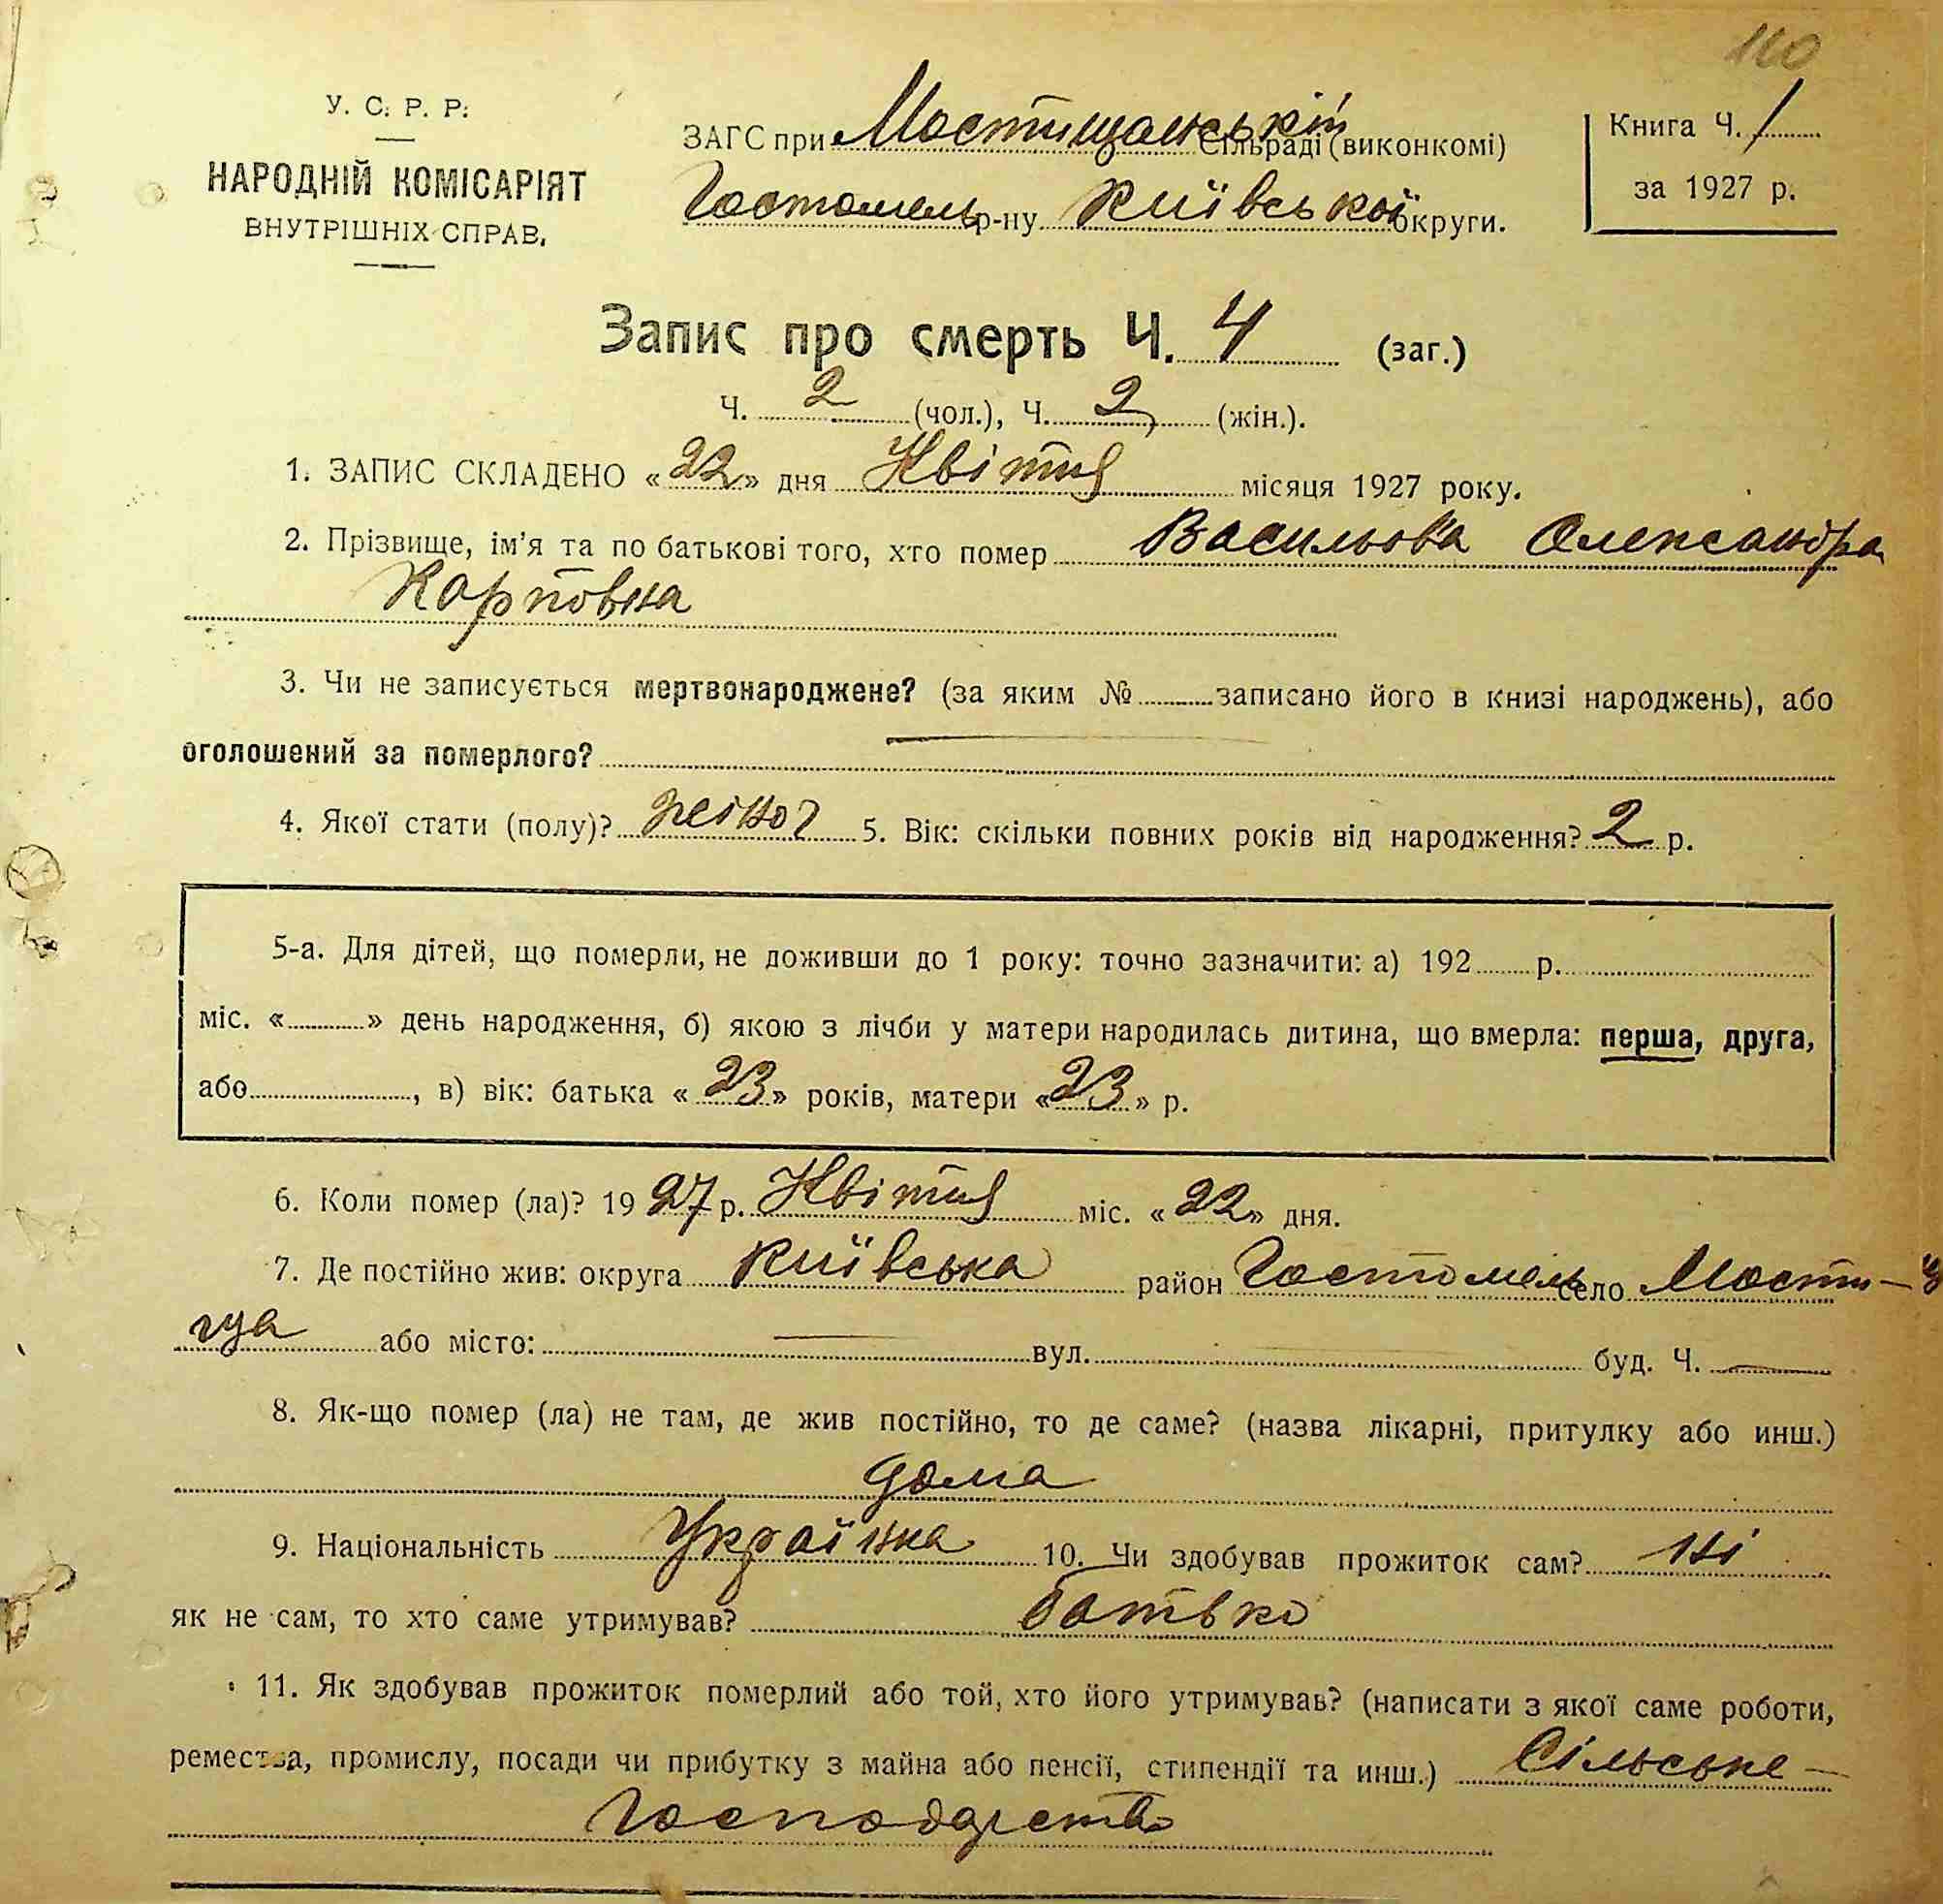 110
У. С. Р. Р.
НАРОДНІЙ КОМІСАРІЯТ
ВНУТРІШНІХ СПРАВ.
ЗАГС при Мостищанській Сільраді (виконкомі)
Гостомель р-ну Київської округи.
Книга Ч. 1
за 1927 р.
Запис про смерть Ч. 4 (заг.)
Ч. 2 (чол.), Ч. 2 (жін.).
1. ЗАПИС СКЛАДЕНО «22» дня Квітня місяця 1927 року.
2. Прізвище, ім'я та по батькові того, хто помер Васильова Олександра
Карповна
3. Чи не записується мертвонароджене? (за яким № записано його в книзі народжень), або
оголошений за померлого?
4. Якої стати (полу)? жіноч 5. Вік: скільки повних років від народження? 2 р.
5-а. Для дітей, що померли, не доживши до 1 року: точно зазначити: а) 192 р.
міс. « » день народження, б) якою з лічби у матери народилась дитина, що вмерла: перша, друга,
або , в) вік: батька «23» років, матери «23» р.
6. Коли помер (ла)? 1927 р. Квітня міс. «22» дня.
7. Де постійно жив: округа Київська район Гостомель село Мости-
ща або місто: вул. буд. Ч.
8. Як-що помер (ла) не там, де жив постійно, то де саме? (назва лікарні, притулку або инш.)
дома
9. Національність Українка 10. Чи здобував прожиток сам? ні
як не сам, то хто саме утримував? батько
11. Як здобував прожиток померлий або той, хто його утримував? (написати з якої саме роботи,
ремества, промислу, посади чи прибутку з майна або пенсії, стипендії та инш.) Сільське-
Господарство